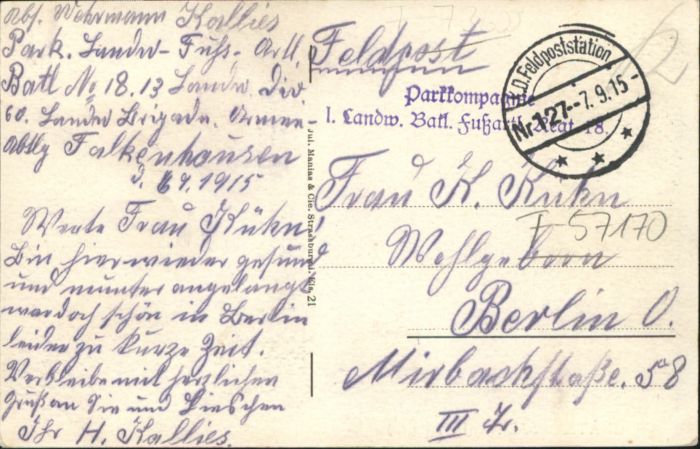 Abs. Wehrmann Kallies
Park. Landw- Fuhs- Artl.
Batl No 18. 13 Landw. Div
60. Landw Brigade. Armee-
Abtlg Falkenhausen
d. 6 9. 1915
Werte Frau Kühn!
Bin hier wieder gesund
und munter angelangt
war doch schön in Berlin
leider zu kurze Zeit.
Verbleibe mit herzlichen
Gruß an Sie und Lieschen
Ihr H. Kallies.
Jul. Manias & Cie. Strassburg i. Els. 21
Feldpost
K.D. Feldpoststation
Nr. 127 - 7. 9. 15 -
Parkkompagnie
1. Landw. Batl. Fußartl. Regt. 18.
Frau K. Kühn
Wohlgeborn
F 57170
Berlin O.
Mirbachstraße. 58
III Tr.